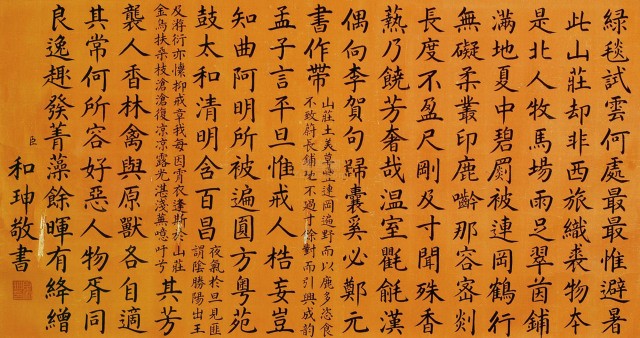 綠毯試雲何處最最惟避暑
此山莊却非西旅織裘物本
是北人牧馬場雨足翠茵鋪
滿地夏中碧罽被連岡鶴行
無礙柔叢印鹿嚙那容密剡
長度不盈尺剛及寸聞殊香
爇乃饒芳奢哉温室氍毹漢
偶向李賀句歸囊奚必鄭元
書作帶
山莊土美草 連岡遍野而以鹿多恣食
不致蔚長鋪地不過寸餘對而引興成韻
孟子言平旦惟戒人梏妄豈
知曲阿明所被遍圓方粵苑
鼓太和清明含百昌
夜氣於旦見匪
謂陰勝陽出王
及游衍亦懍抑戒章我每因宵衣逢斯於山莊
金烏扶桒枝滄滄復凉凉露光湛淺草噫吁兮
其芳
襲人香林禽與原獸各自適
其常何所容好惡人物胥同
良逸趣發菁藻餘暉有絳繒
臣和珅敬書